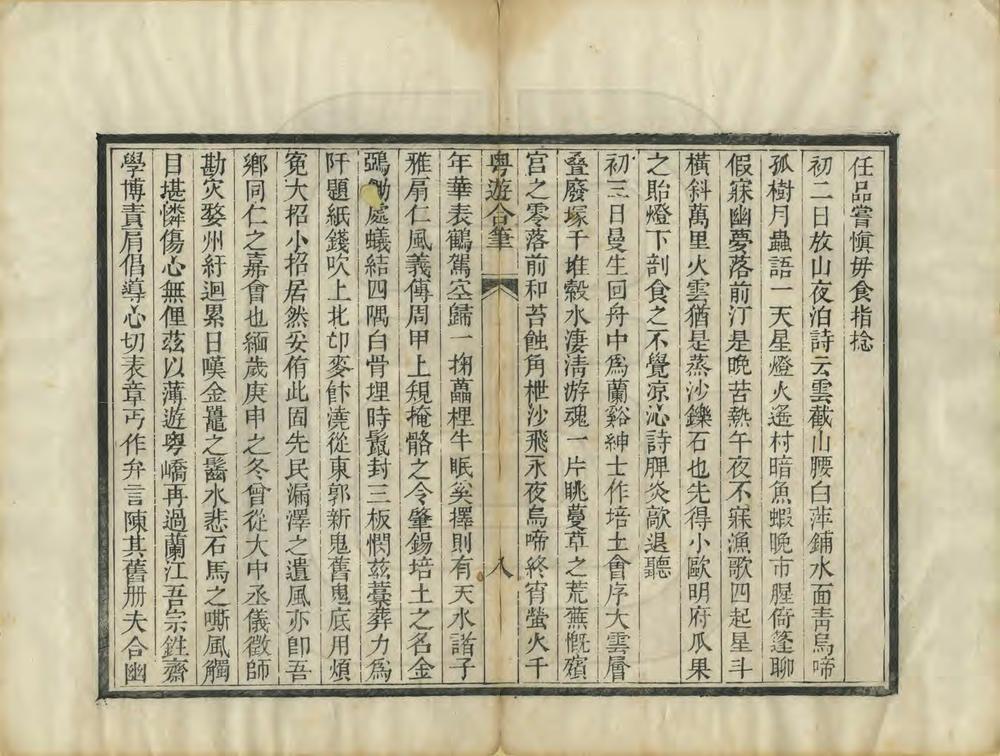 任品嘗愼毋食指捻
初二日放山夜泊詩云雲截山腰白萍鋪水面靑烏啼
孤樹月蟲語一天星燈火遙村暗魚蝦晚市腥倚篷聊
假寐幽夢落前汀是晚苦熱午夜不寐漁歌四起星斗
橫斜萬里火雲猶是蒸沙鑠石也先得小歐明府瓜果
之貽燈下剖食之不覺凉沁詩脾炎歊退聽
初三日曼生回舟中爲蘭谿紳士作培土會序大雲層
叠廢塚千堆縠水淒淸游魂一片眺蔓草之荒蕪慨殯
宮之零落前和苔蝕角枻沙飛永夜烏啼終宵螢火千
粤遊合筆 八
年華表鶴駕空歸一掬蘽梩牛眠奚擇則有天水諸子
雅肩仁風義傳周甲上規掩骼之令肇錫培土之名金
處蟻結四隅白骨埋時鬣封三板憫茲藁葬力爲
阡題紙錢吹上北邙麥飰澆從東郭新鬼舊鬼底用煩
寃大招小招居然妥侑此固先民漏澤之遺風亦卽吾
鄉同仁之嘉會也緬歲庚申之冬曾從大中丞儀徵師
勘灾婺州紆迴累日嘆金鼉之齧水悲石馬之嘶風觸
目堪憐傷心無俚茲以薄遊粤嶠再過蘭江吾宗鉎齋
學博責肩倡導心切表章丐作弁言陳其舊册夫合幽